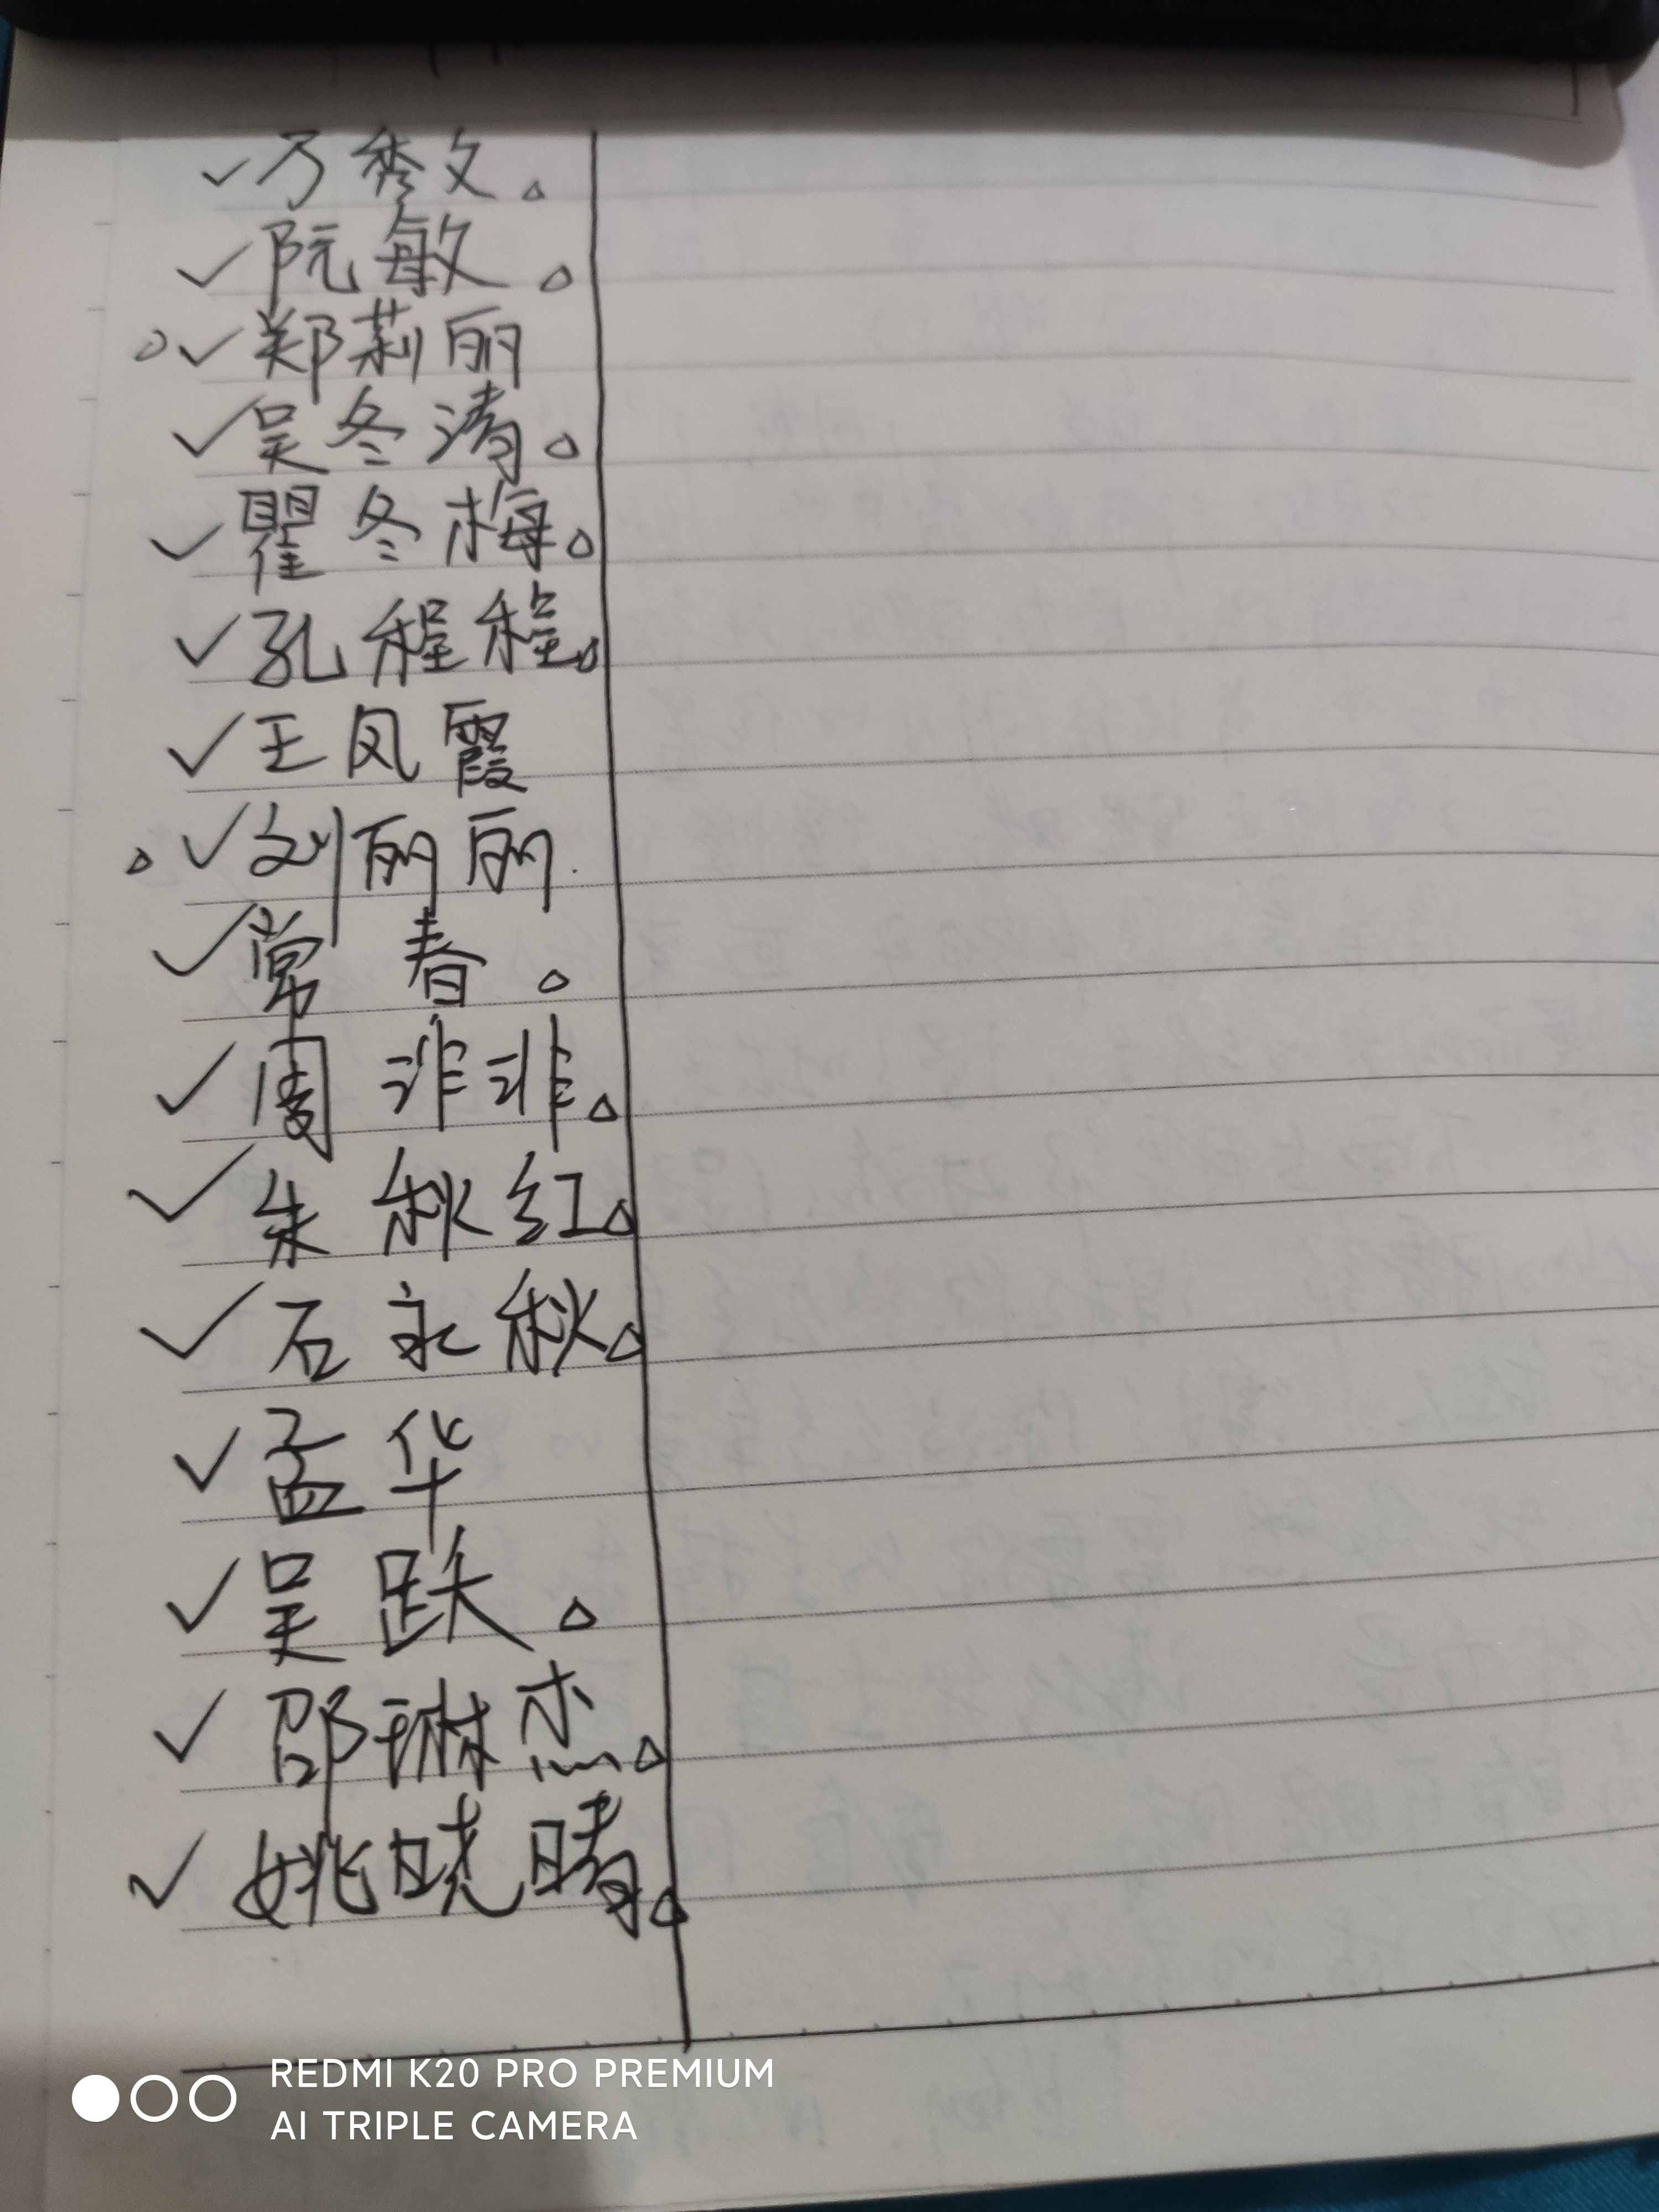 ✓乃秀文。
✓阮敏。
。✓郑莉丽
✓吴冬清。
✓瞿冬梅。
✓孔程程。
✓王凤霞
。✓刘丽丽
✓常春。
✓周非非。
✓朱秋红。
✓石永秋。
✓孟华
✓吴跃。
✓邵琳杰。
✓姚晓晴。
REDMI K20 PRO PREMIUM
AI TRIPLE CAMERA